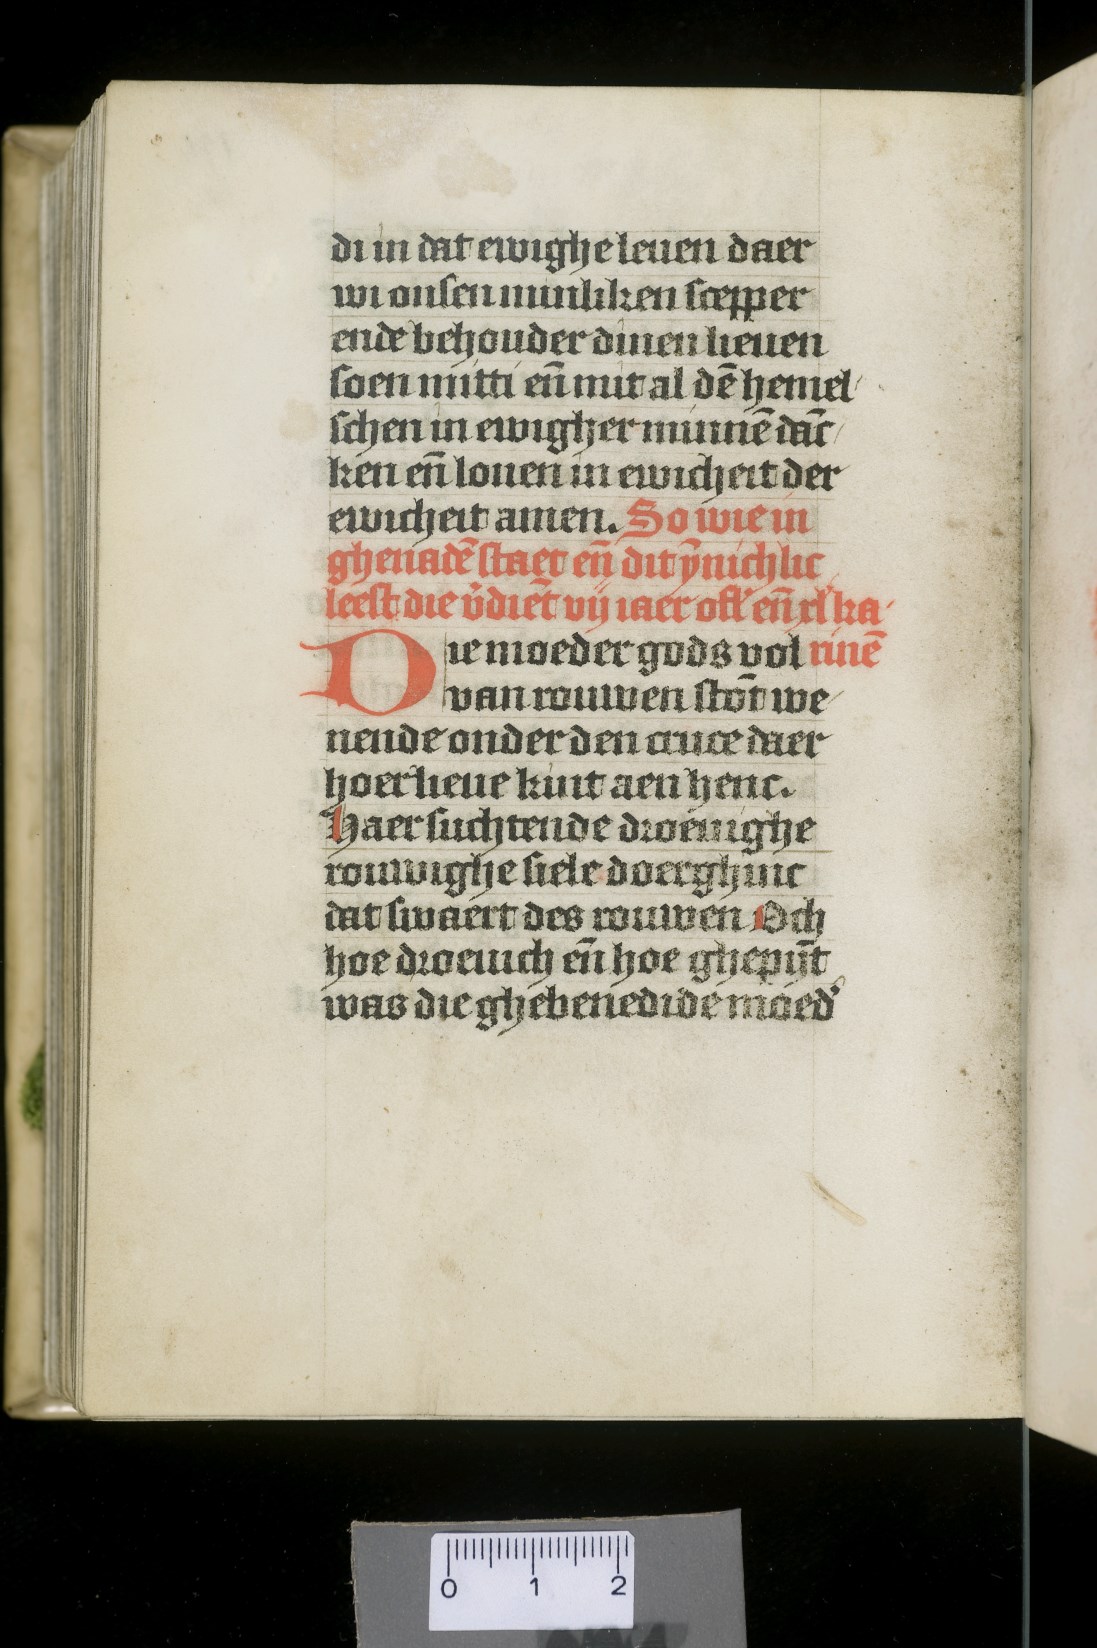 di in dat ewighe leuen daer
wi onsen minliken scepper
ende behouder dinen lieuen
soen mitti en̄ mit al dē hemel
schen in ewigher minnē danc
ken en̄ louen in ewicheit der
ewicheit amen. So wie in
ghenadē staet en̄ dit ȳnichlic
leest die v̓diēt vij iaer ofl' en̄ xl' ka
rinē
Die moeder gods vol
van rouwen stōt we
nende onder den cruce daer
hoer lieue kint aen henc.
Haer suchtende droeuighe
rouwighe siele doerghinc
dat swaert des rouwen Och
hoe droeuich en̄ hoe ghepȳt
was die ghebenedide moed'
0 1 2